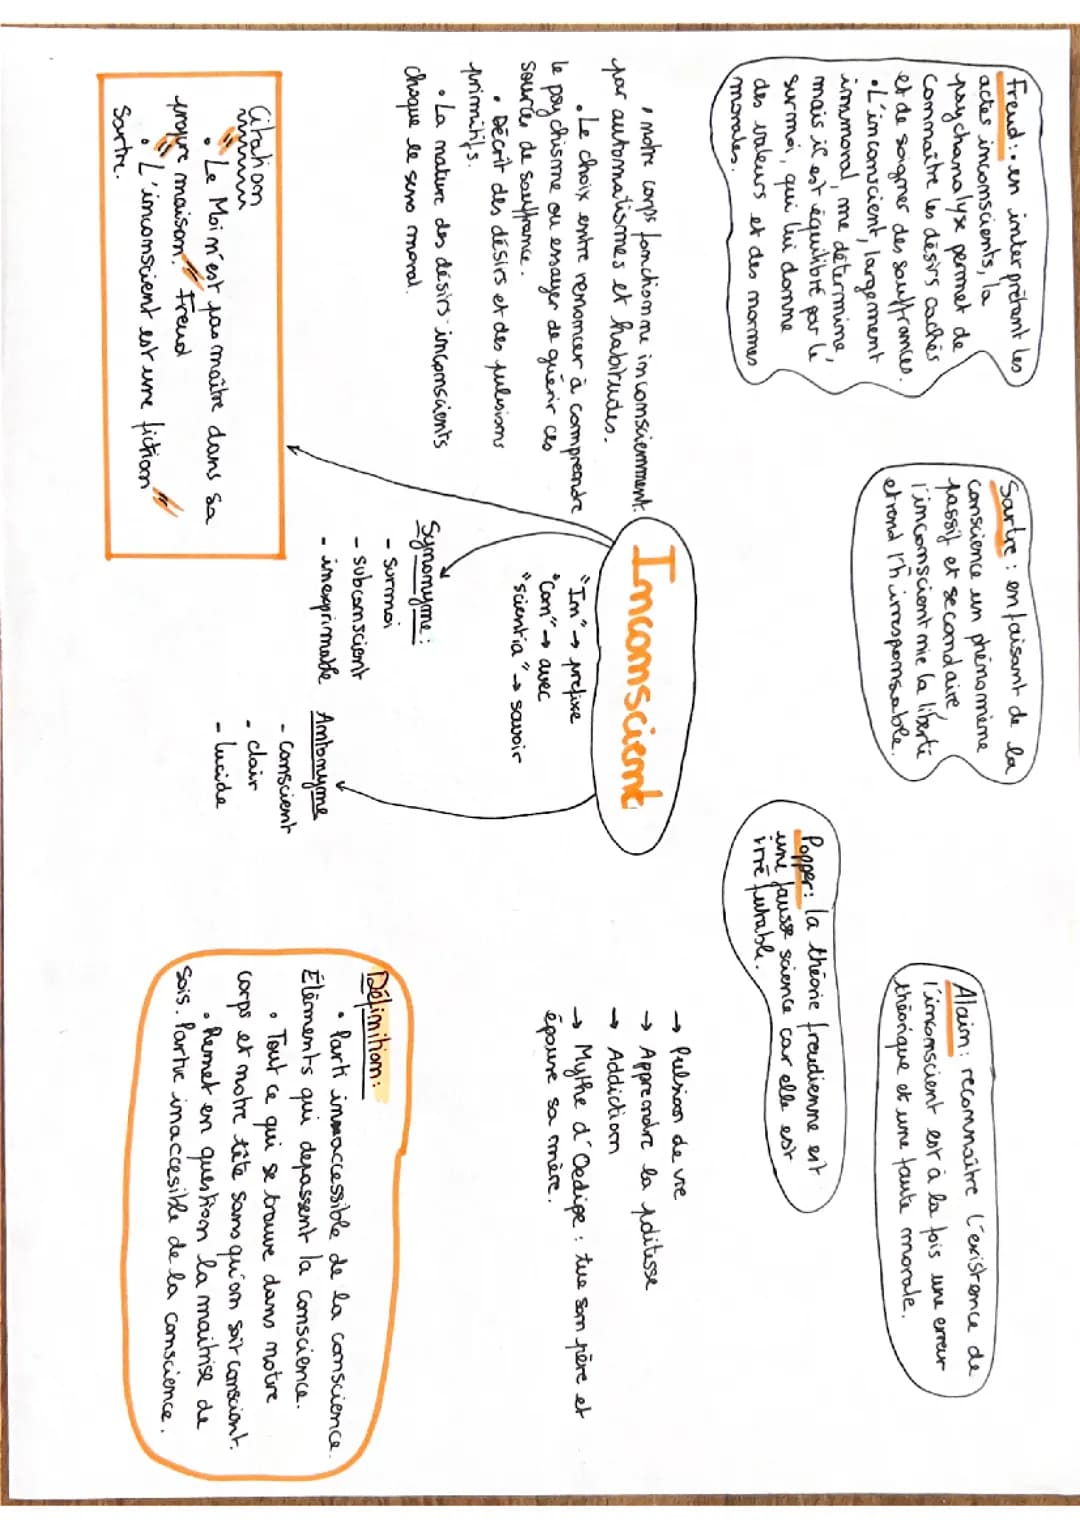 Freud: • en interprétant les
actes inconscients, la
psychanalyse permet de
connaître les désirs cachés
et de soigner des souffrances.
• L'inconscient, largement
immoral, me détermine,
mais il est équilibré par le
surmoi, qui lui donne
des valeurs et des normes
morales.
Sartre : en faisant de la
conscience un phénomène
passif et secondaire
l'inconscient nie la liberté
et rend l'h irresponsable.
Alain : reconnaître l'existence de
l'inconscient est à la fois une erreur
théorique et une faute morale.
Popper : la théorie freudienne est
une fausse science car elle est
irréfutable.
• notre corps fonctionne inconsciemment
par automatismes et habitudes.
• Le choix entre renoncer à comprendre
le psychisme ou essayer de guérir ces
sources de souffrance.
• Décrit des désirs et des pulsions
primitifs.
• La nature des désirs inconscients
choque le sens moral.
Inconscient
"In" → prefixe
"Con" → avec
"scientia" → savoir
→ Pulsion de vie
→ Apprendre la politesse
→ Addiction
→ Mythe d'Oedipe : tue son père et
épouse sa mère.
Synonyme :
- surmoi
- subconscient
- inexprimable
Antonyme
- conscient
- clair
- lucide
Citation
• "Le Moi n'est pas maître dans sa
propre maison" Freud
• L'inconscient est une fiction"
Sartre.
Définition :
• Parti innaccessible de la conscience.
Éléments qui depassent la conscience.
• Tout ce qui se trouve dans notre
corps et notre tête sans qu'on soit conscient.
• Remet en question la maitrise de
sois. Partie inaccesible de la conscience.